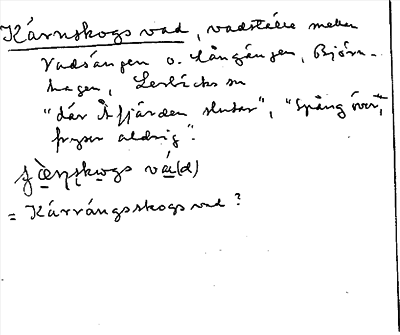 Kärnskogs vad, vadställe mellan
Vadsängen o. Långängen, Björn-
hagen, Lerbäcks sn
"där Åfjärden slutar", "Spång över,
fryser aldrig".
= Kärrängsskogs vad?